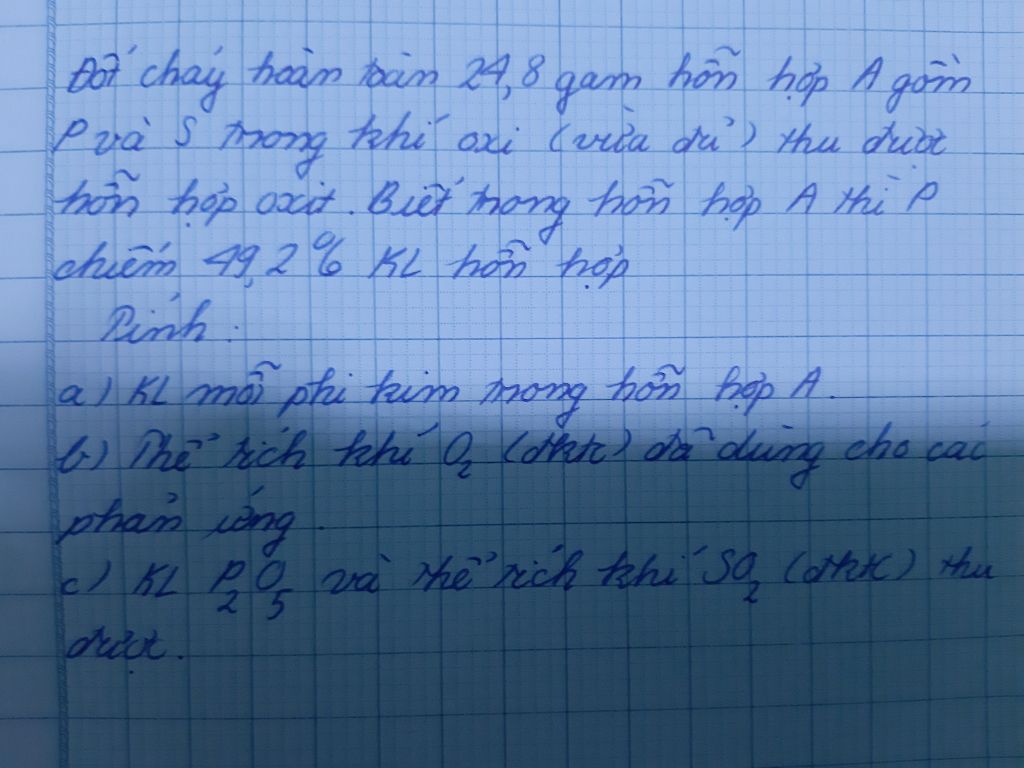 Đốt cháy hoàn toàn 24,8 gam hỗn hợp A gồm
P và S trong khí oxi (vừa đủ) thu được
hỗn hợp oxit. Biết trong hỗn hợp A thì P
chiếm 49,2% KL hỗn hợp
Tính:
a) KL mỗi phi kim trong hỗn hợp A.
b) Thể tích khí O₂ (đktc) đã dùng cho các
phản ứng.
c) KL P₂O₅ và thể tích khí SO₂ (đktc) thu
được.